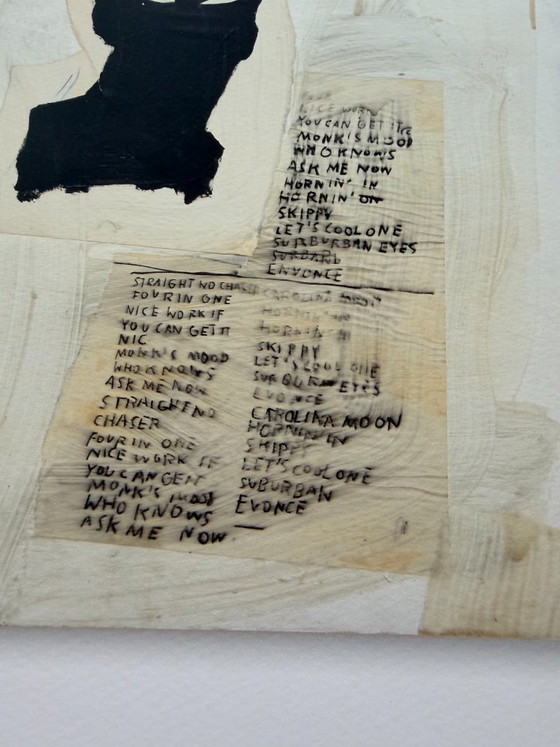 NICE WORK
YOU CAN GET IT
MONK'S MOOD
WHO KNOWS
ASK ME NOW
HORNIN' IN
HORNIN' ON
SKIPPY
LET'S COOL ONE
SUBURBAN EYES
EVONCE
STRAIGHT NO CHASER
FOUR IN ONE
NICE WORK IF
YOU CAN GET IT
NIC
MONK'S MOOD
WHO KNOWS
ASK ME NOW
STRAIGHT NO
CHASER
FOUR IN ONE
NICE WORK IF
YOU CAN GET IT
MONK'S MOOD
WHO KNOWS
ASK ME NOW
CAROLINA
HORNIN' IN
HORNIN'
SKIPPY
LET'S COOL ONE
SUBURBAN EYES
EVONCE
CAROLINA MOON
HORNIN' IN
SKIPPY
LET'S COOL ONE
SUBURBAN
EVONCE